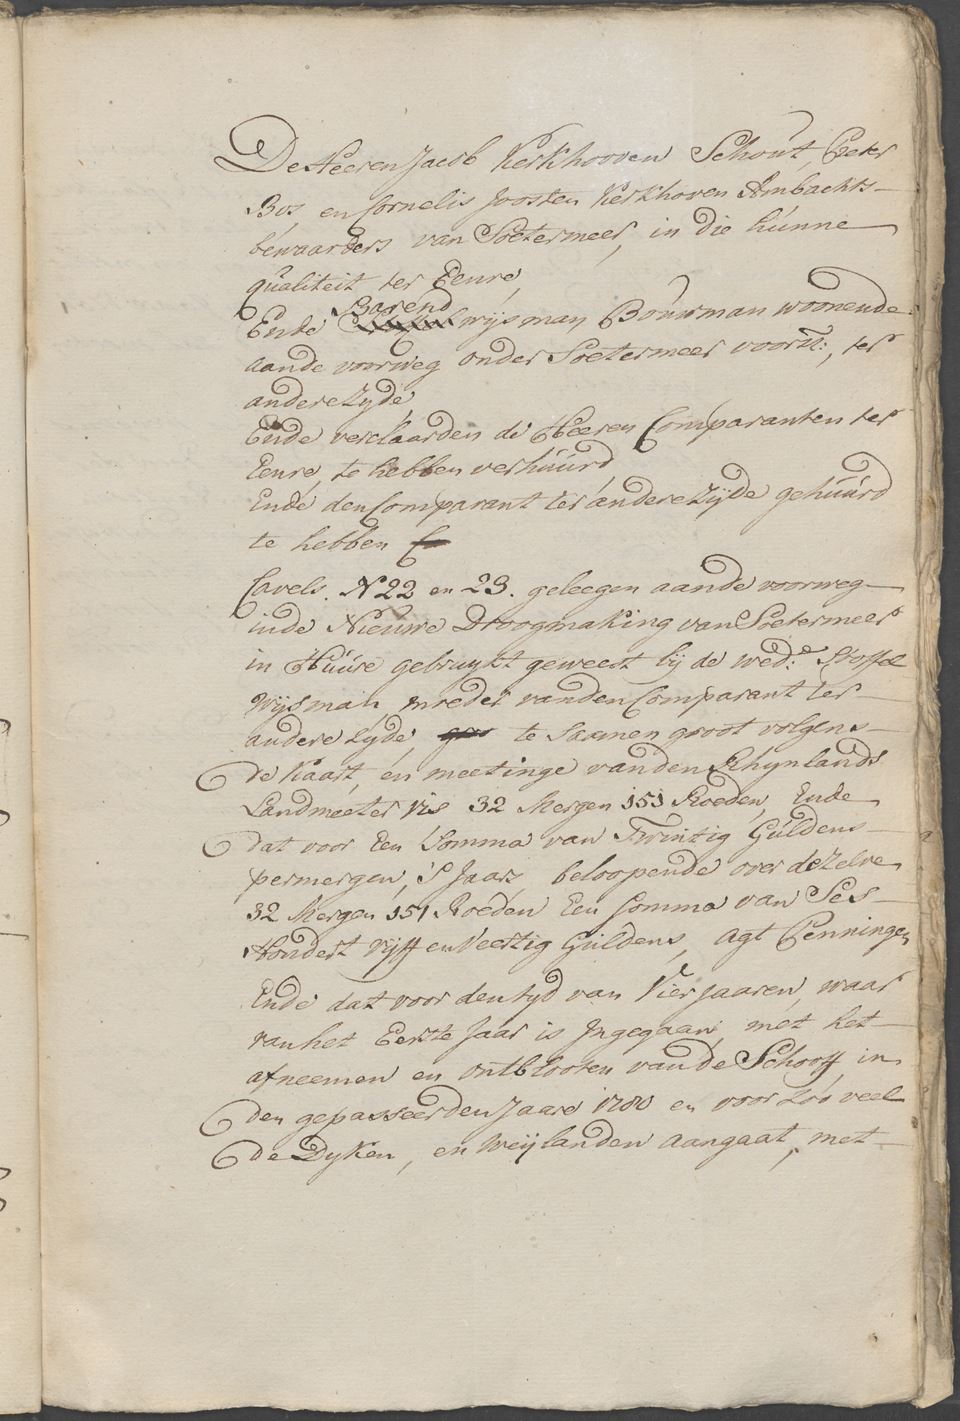 De Heeren Jacob Kerkhooven Schout, Peeter
Bos en Cornelis Joosten Kerkhoven Ambachts-
bewaarders van Soetermeer, in die hunne
qualiteit ter Eenre,
Barend
Ende wijsman Bouwman woonende
aande voorweg onder Soetermeer voorn:, ter
andere zyde,
Ende verclaarden de Heeren Comparanten ter
Eenre, te hebben verhuurd
Ende den Comparant ter andere zijde gehuurd
te hebben
Cavels. N 22 en 23. geleegen aande voorweg
inde Nieuwe Droogmaking van Soetermeer
in Huure gebruykt geweest bij de wed:e Stoffel
Wijsman moeder vanden Comparant ter
andere zyde, te saamen groot volgens
de kaart, en meetinge vanden Rhynlands
Landmeeter vis 32 Mergen 151 Roeden, Ende
dat voor Een Somma van Twintig Guldens
per mergen, 'S Jaars, beloopende over dezelve
32 Mergen 151 Roeden Een Somma van Ses-
Hondert vyff en veertig Guldens, agt Penningen
Ende dat voor den tyd van Vier Jaaren, waar
van het Eerste Jaar is Ingegaan, met het
afneemen en ontblooten van de Schooff, in
den gepasseerden Jaare 1780 en voor zoo veel
de Dyken, en Weijlanden aangaat, met